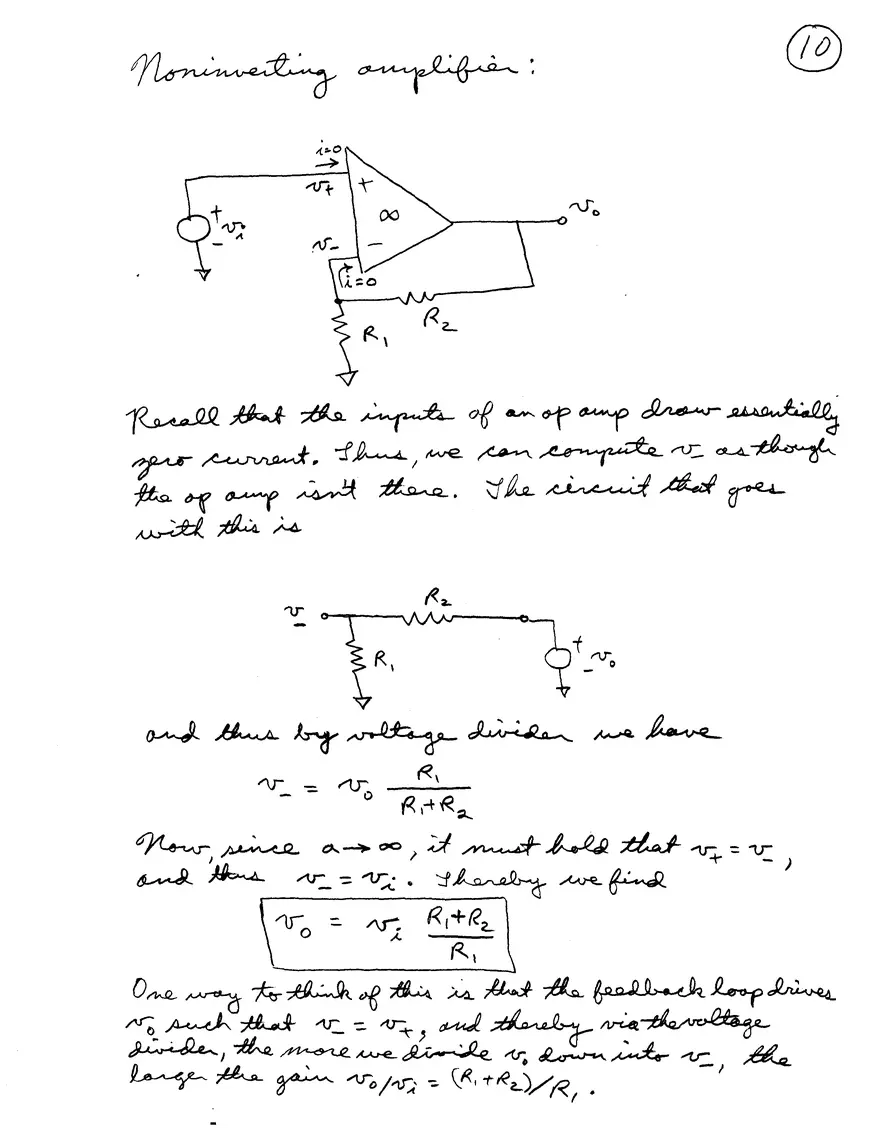 10
Noninverting amplifier:
i=0
v+
+
∞
v_o
+
v_i
-
v-
-
i=0
R_2
R_1
Recall that the inputs of an op amp draw essentially
zero current. Thus, we can compute v_ as though
the op amp isn't there. The circuit that goes
with this is
R_2
v_
R_1
+
v_o
-
and thus by voltage divider we have
v_- = v_o R_1/(R_1+R_2)
Now, since a→∞, it must hold that v_+ = v_-,
and thus v_- = v_i. Thereby we find
v_o = v_i (R_1+R_2)/R_1
One way to think of this is that the feedback loop drives
v_o such that v_- = v_+, and thereby via the voltage
divider, the more we divide v_o down into v_-, the
larger the gain v_o/v_i = (R_1+R_2)/R_1.